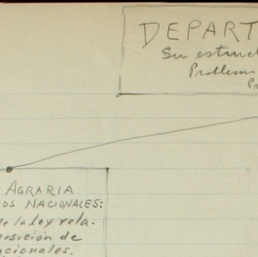 DEPART
Su estruc
Problem
AGRARIA
OS NACIONALES:
de la Ley rela-
posición de
acionales.